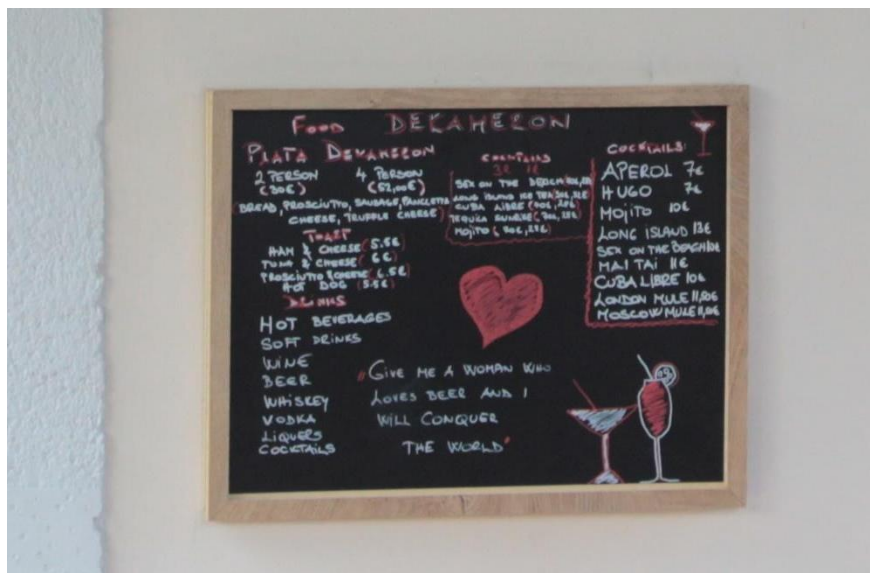 Food DEKAMERON
PLATA DEKAMERON
2 PERSON 4 PERSON
(30€) (52,00€)
(BREAD, PROSCIUTTO, SAUSAGE, PANCLETTA
CHEESE, TRUFFLE CHEESE)
TOAST
HAM & CHEESE (5.5€)
TUNA & CHEESE (6€)
PROSCIUTTO & CHEESE (6.5€)
HOT DOG (5.5€)
DRINKS
HOT BEVERAGES
SOFT DRINKS
WINE
BEER
WHISKEY
VODKA
LIQUERS
COCKTAILS
COCKTAILS
SEX ON THE BEACH
LONG ISLAND ICE TEA
CUBA LIBRE
TEQUILA SUNRISE
MOJITO
"GIVE ME A WOMAN WHO
LOVES BEER AND I
WILL CONQUER
THE WORLD"
COCKTAILS:
APEROL 7€
HUGO 7€
MOJITO 10€
LONG ISLAND 13€
SEX ON THE BEACH 10€
MAI TAI 11€
CUBA LIBRE 10€
LONDON MULE 11,50€
MOSCOW MULE 11,00€